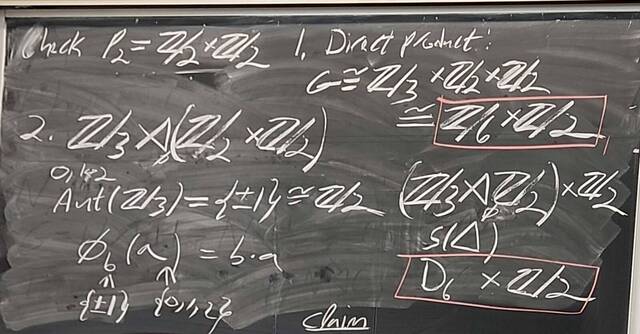 Check P₂ = ℤ/2 × ℤ/2
1. Direct product:
G ≅ ℤ/3 × ℤ/2 × ℤ/2
≅ ℤ/6 × ℤ/2
2. ℤ/3 ⋊ (ℤ/2 × ℤ/2)
0,1,2
Aut(ℤ/3) = {±1} ≅ ℤ/2
ϕ_b(a) = b·a
{±1} {0,1,2}
(ℤ/3 ⋊ ℤ/2) × ℤ/2
S(Δ)
D₆ × ℤ/2
Claim